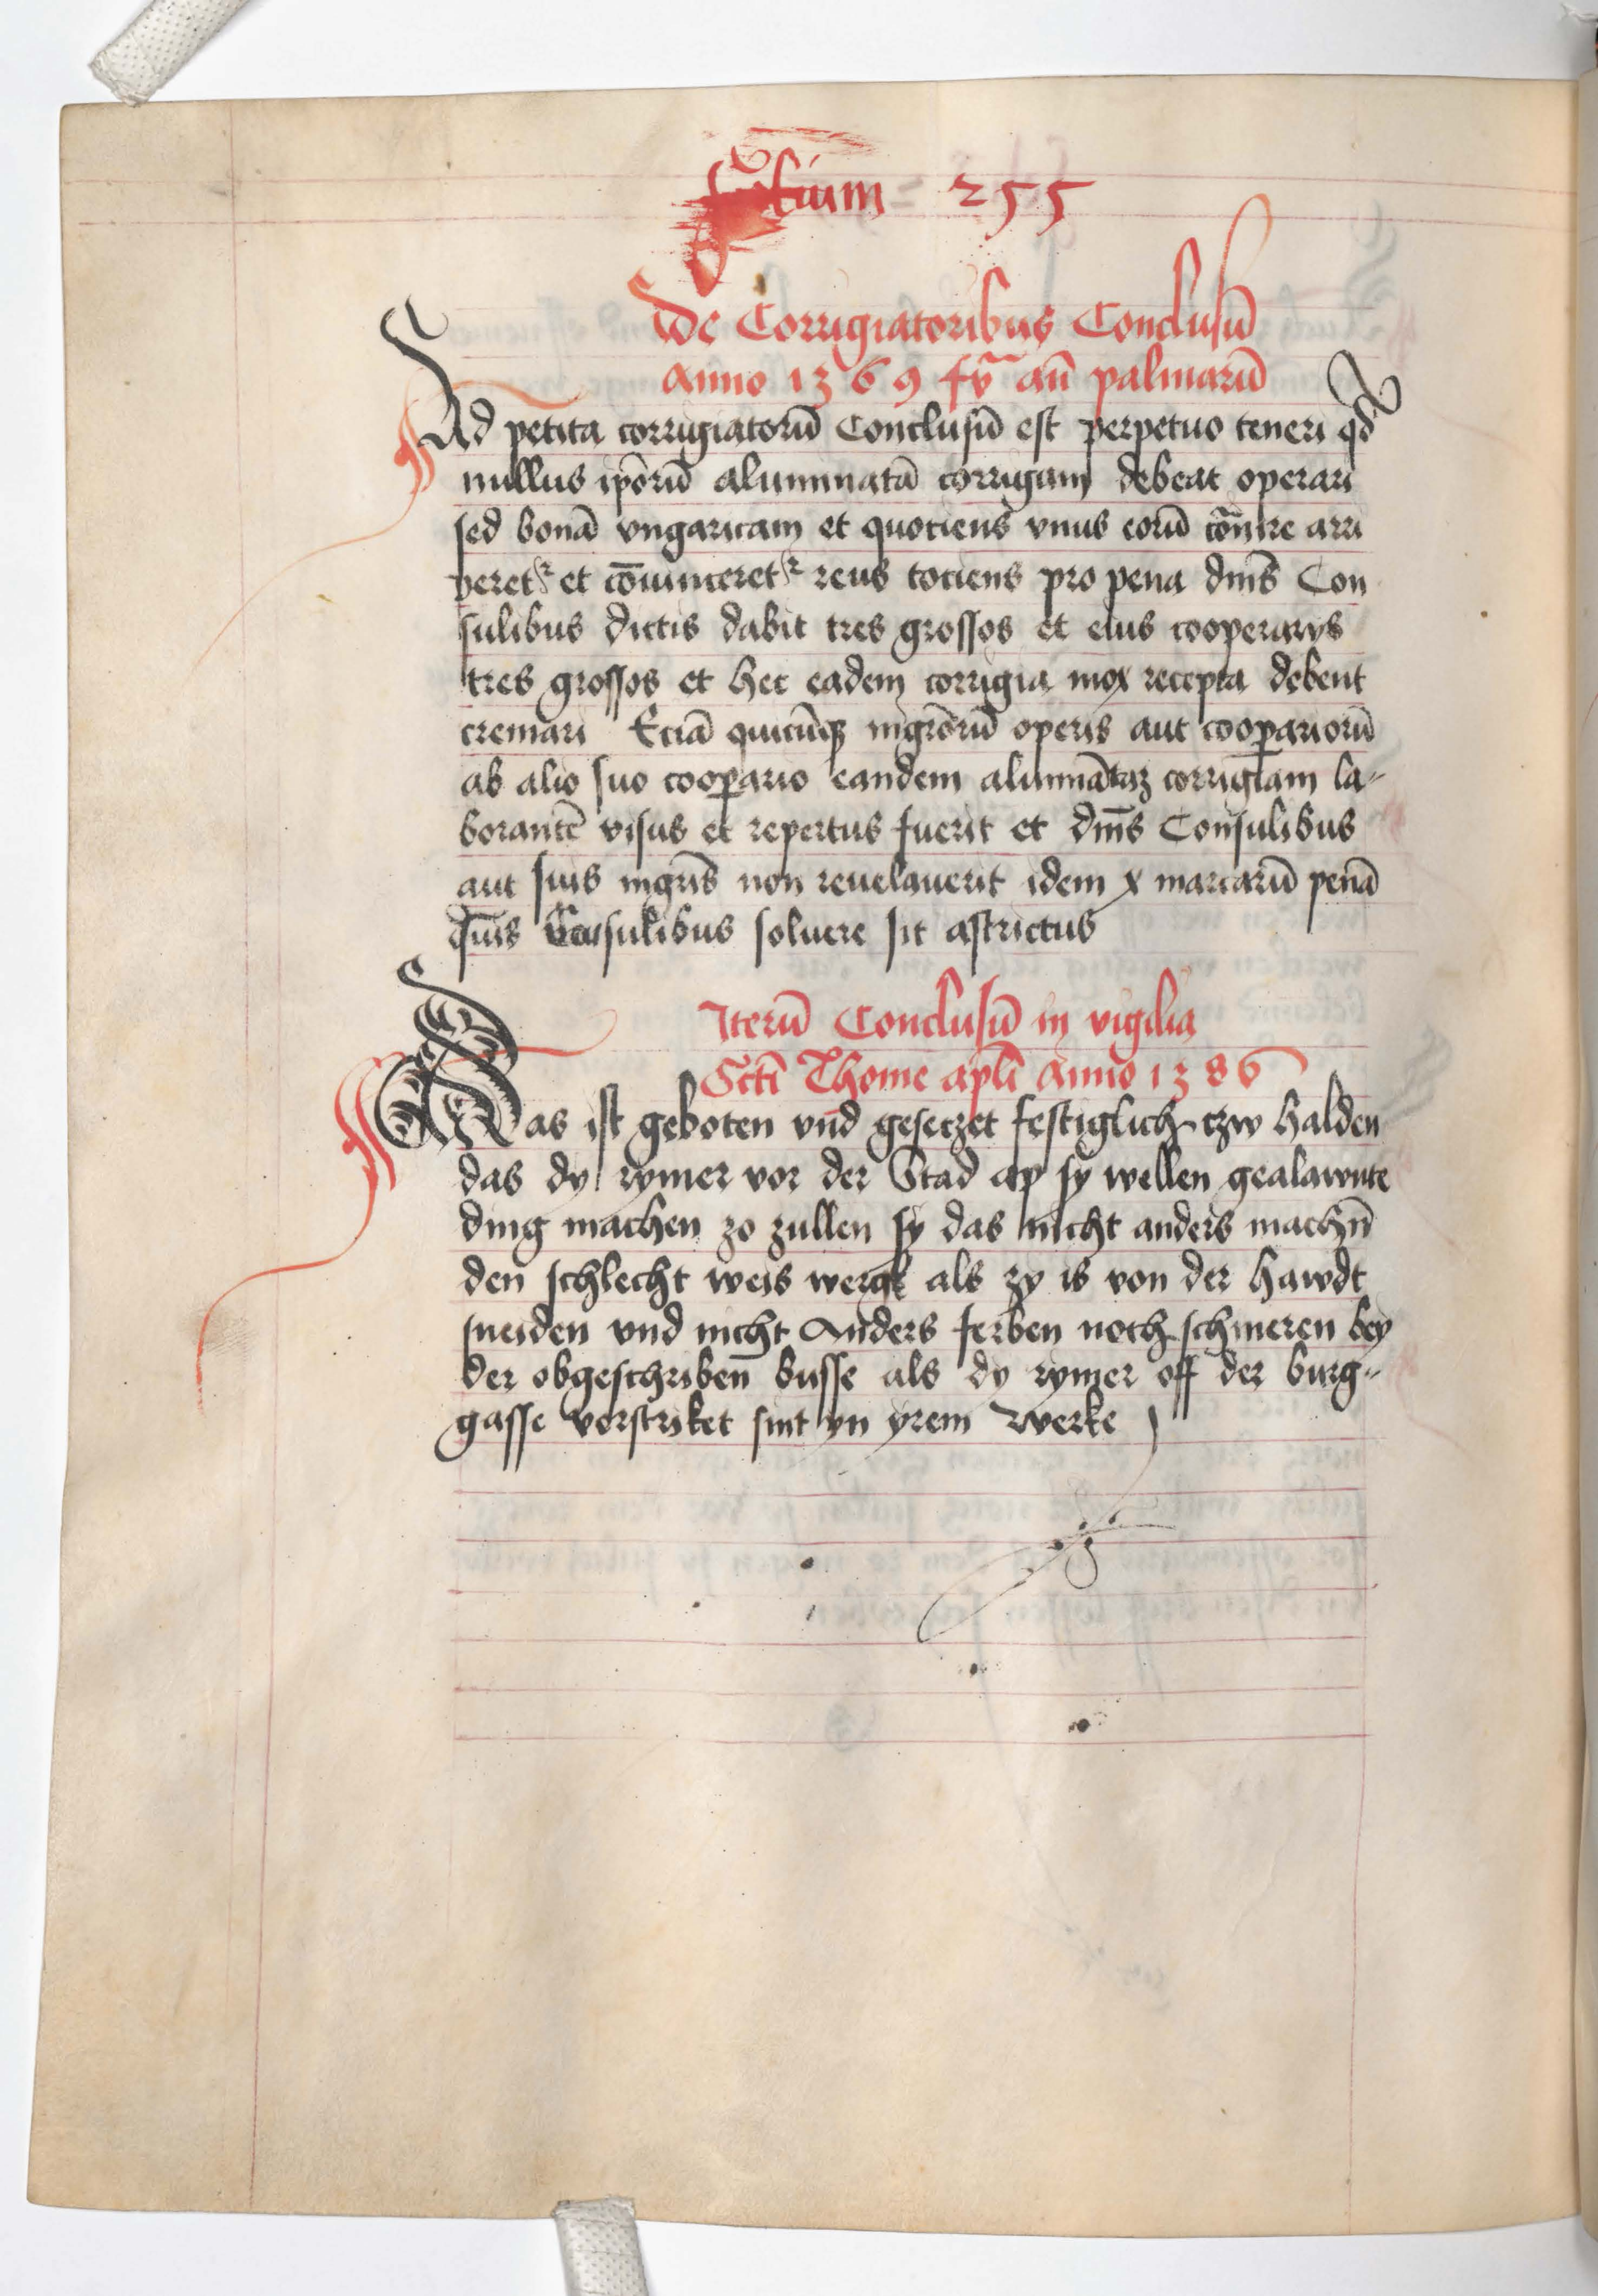 folium = 255
De Corrigiatoribus Conclusū
Anno 1369 fꝟ an̄ palmarū
Ad petita corrigiatorū Conclusū est perpetuo teneri qđ
nullus ip̄orū aluminatā corrigiam debeat operari
sed bonā vngaricam et quotiens vnus eorū cōmire arri
peret᷑ et cōuinceret᷑ reus totiens pro pena dn̄is Con
sulibus dictis dabit tres grossos et eius cooperarys
tres grossos et hec eadem corrigia mox recepta debent
cremari Eciā quicūq mgr̄orū operis aut cooꝑariorū
ab alio suo cooꝑario eandem aluminātaz corrigiam la-
borantē visus et repertus fuerit et dn̄is Consulibus
aut suis mgr̄is non reuelauerit idem x marcarū penā
dn̄is Consulibus soluere sit astrictus
Iterū Conclusū in vigilia
Sct̄i Thome apl̄i Anno 1386
Das ist geboten vnd geseczet festiglich czw halden
das dy rymer vor der Stad ap sy wellen gealawnte
ding machen zo zullen sy das nicht anders machn̄
den schlecht weis wergk als zy is von der hawdt
sneiden vnd nicht Anders ferben noch schmeren bey
der obgeschriben̄ busse als dy rymer off der burg-
gasse vorstriket sint yn yrem werke